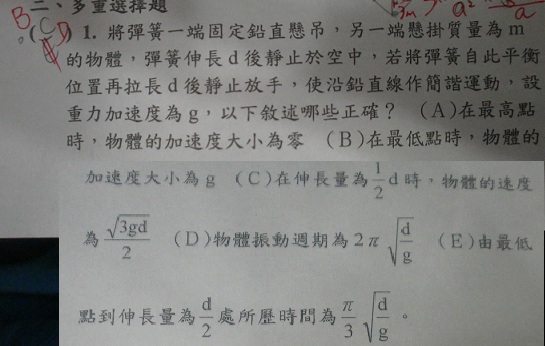 二、多重選擇題
(C D) 1. 將彈簧一端固定鉛直懸吊，另一端懸掛質量為 m
B
的物體，彈簧伸長 d 後靜止於空中，若將彈簧自此平衡
位置再拉長 d 後靜止放手，使沿鉛直線作簡諧運動，設
重力加速度為 g，以下敘述哪些正確？ (A)在最高點
時，物體的加速度大小為零 (B)在最低點時，物體的
加速度大小為 g (C)在伸長量為 \frac{1}{2} d 時，物體的速度
為 \frac{\sqrt{3gd}}{2} (D)物體振動週期為 2π \sqrt{\frac{d}{g}} (E)由最低
點到伸長量為 \frac{d}{2} 處所歷時間為 \frac{π}{3} \sqrt{\frac{d}{g}} 。